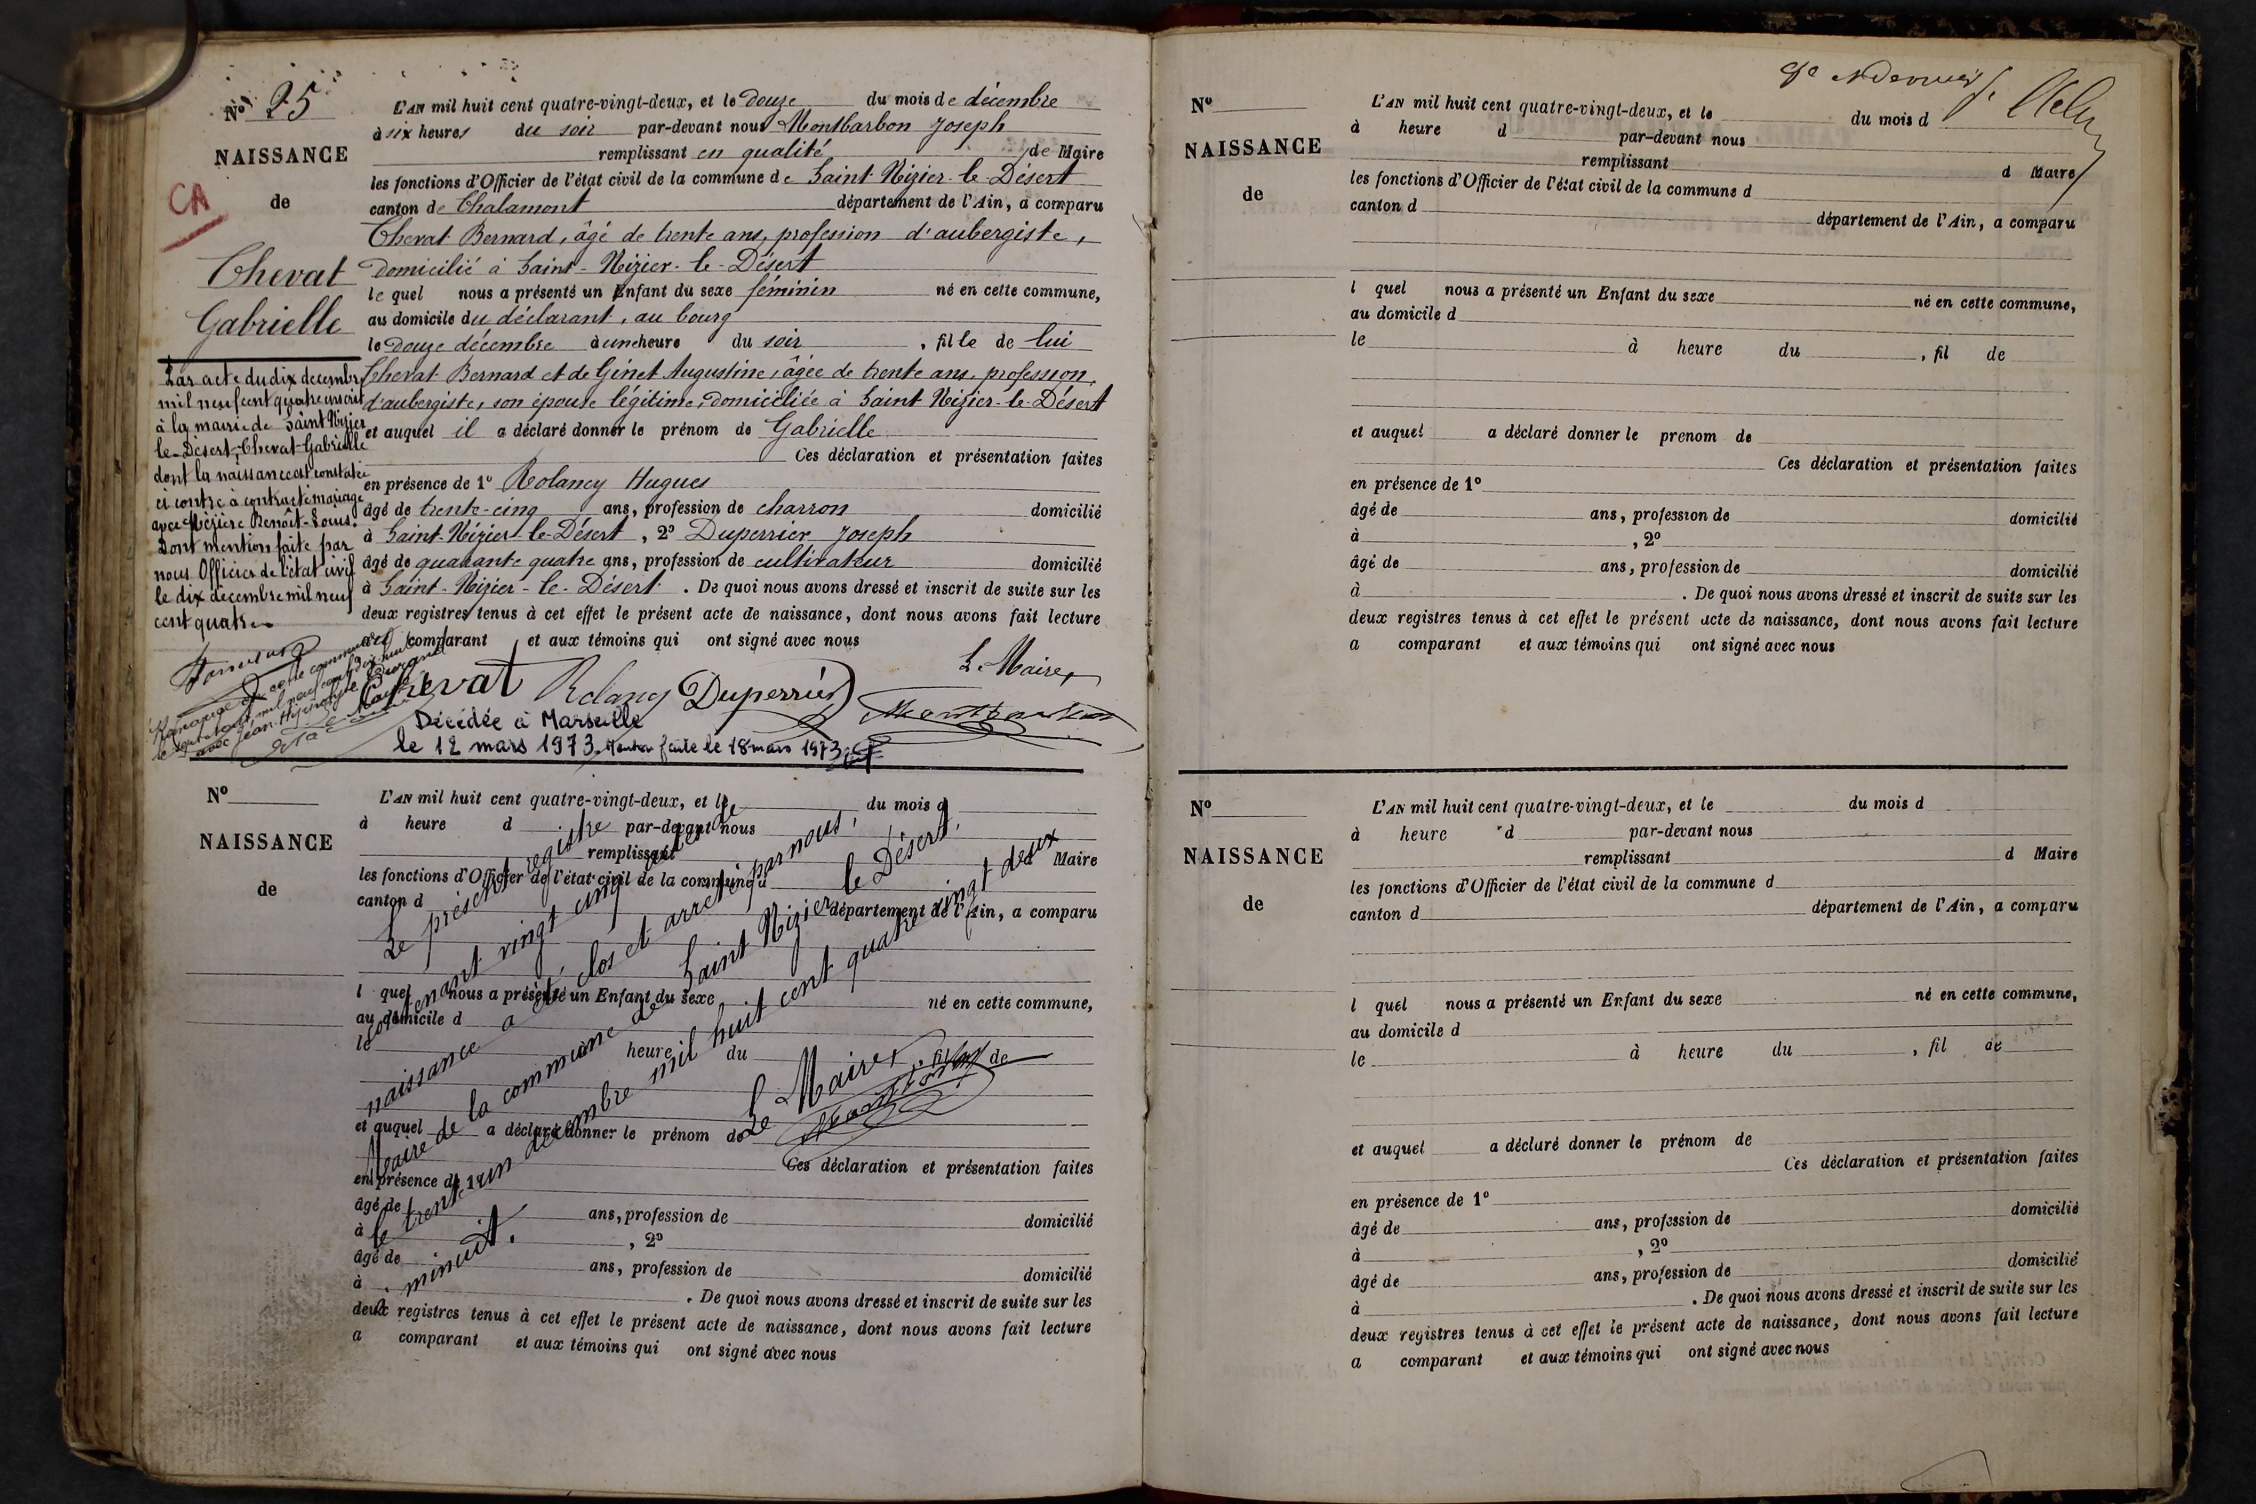 No 25
NAISSANCE
CA
de
Chevat
Gabrielle
L'AN mil huit cent quatre-vingt-deux, et le douze du mois de décembre
à six heures du soir par-devant nous Montbarbon Joseph
remplissant en qualité de Maire
les fonctions d'Officier de l'état civil de la commune de Saint-Nizier-le-Désert
canton de Chalamont département de l'Ain, a comparu
Chevat Bernard, âgé de trente ans, profession d'aubergiste,
domicilié à Saint-Nizier-le-Désert
le quel nous a présenté un Enfant du sexe féminin né en cette commune,
au domicile du déclarant, au bourg
le douze décembre à une heure du soir, fille de lui
Chevat Bernard et de Ginet Augustine, âgée de trente ans, profession
d'aubergiste, son épouse légitime, domiciliée à Saint Nizier-le-Désert
et auquel il a déclaré donner le prénom de Gabrielle
Ces déclaration et présentation faites
en présence de 1º Rolancy Hugues
âgé de trente-cinq ans, profession de charron domicilié
à Saint-Nizier-le-Désert, 2º Duperrier Joseph
âgé de quarante quatre ans, profession de cultivateur domicilié
à Saint-Nizier-le-Désert. De quoi nous avons dressé et inscrit de suite sur les
deux registres tenus à cet effet le présent acte de naissance, dont nous avons fait lecture
au comparant et aux témoins qui ont signé avec nous
Le Maire
Chevat Rolancy Duperrier Montbarbon
Décédée à Marseille
le 12 mars 1973. Mention faite le 18 mars 1973
Par acte du dix décembre
mil neuf cent quatre inscrit
à la mairie de Saint Nizier
le-Désert, Chevat Gabrielle
dont la naissance est constatée
ci contre à contracté mariage
avec Mézière Benoît-Louis.
Dont mention faite par
nous Officier de l'état civil
le dix décembre mil neuf
cent quatre
cette commune
mil neuf cent dix huit
avec Jean
Le Maire
No
NAISSANCE
de
L'AN mil huit cent quatre-vingt-deux, et le du mois d
à heure d par-devant nous
remplissant d Maire
les fonctions d'Officier de l'état civil de la commune d
canton d département de l'Ain, a comparu
l quel nous a présenté un Enfant du sexe né en cette commune,
au domicile d
le à heure du , fil de
et auquel a déclaré donner le prénom de
Ces déclaration et présentation faites
en présence de 1º
âgé de ans, profession de domicilié
à , 2º
âgé de ans, profession de domicilié
à . De quoi nous avons dressé et inscrit de suite sur les
deux registres tenus à cet effet le présent acte de naissance, dont nous avons fait lecture
a comparant et aux témoins qui ont signé avec nous
Le présent registre
contenant vingt cinq actes de
naissance a été clos et arrêté par nous,
Maire de la commune de Saint Nizier le Désert,
le trente un décembre mil huit cent quatre vingt deux
à minuit.
Le Maire,
Montbarbon
No
NAISSANCE
de
L'AN mil huit cent quatre-vingt-deux, et le du mois d
à heure d par-devant nous
remplissant d Maire
les fonctions d'Officier de l'état civil de la commune d
canton d département de l'Ain, a comparu
l quel nous a présenté un Enfant du sexe né en cette commune,
au domicile d
le à heure du , fil de
et auquel a déclaré donner le prenom de
Ces déclaration et présentation faites
en présence de 1º
âgé de ans, profession de domicilié
à , 2º
âgé de ans, profession de domicilié
à . De quoi nous avons dressé et inscrit de suite sur les
deux registres tenus à cet effet le présent acte de naissance, dont nous avons fait lecture
a comparant et aux témoins qui ont signé avec nous
No
NAISSANCE
de
L'AN mil huit cent quatre-vingt-deux, et le du mois d
à heure d par-devant nous
remplissant d Maire
les fonctions d'Officier de l'état civil de la commune d
canton d département de l'Ain, a comparu
l quel nous a présenté un Enfant du sexe né en cette commune,
au domicile d
le à heure du , fil de
et auquel a déclaré donner le prénom de
Ces déclaration et présentation faites
en présence de 1º
âgé de ans, profession de domicilié
à , 2º
âgé de ans, profession de domicilié
à . De quoi nous avons dressé et inscrit de suite sur les
deux registres tenus à cet effet le présent acte de naissance, dont nous avons fait lecture
a comparant et aux témoins qui ont signé avec nous